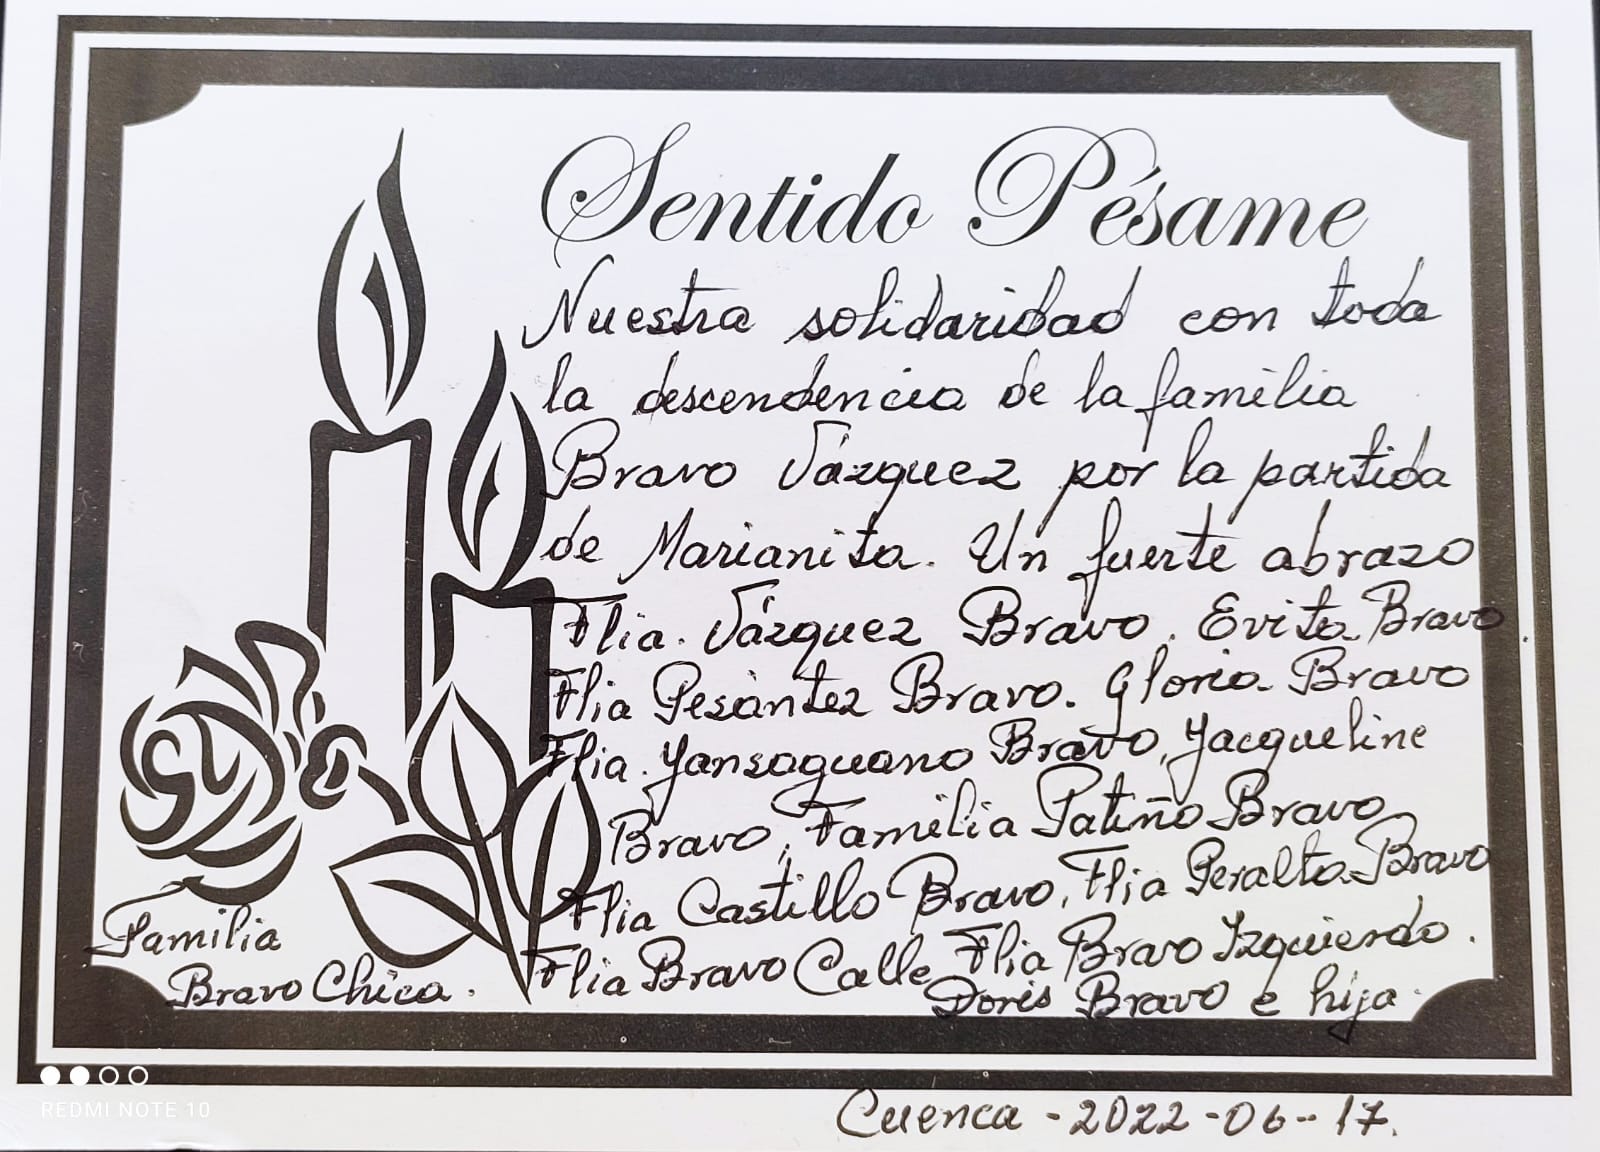 Sentido Pésame
Nuestra solidaridad con toda
la descendencia de la familia
Bravo Vázquez por la partida
de Marianita. Un fuerte abrazo
Flia. Vázquez Bravo. Evita Bravo.
Flia Pesántez Bravo. Gloria Bravo
Flia. Yansaguano Bravo, Jacqueline
Bravo, Familia Patiño Bravo
Flia Castillo Bravo, Flia Peralta Bravo
Flia Bravo Calle Flia Bravo Izquierdo.
Doris Bravo e hija.
Familia
Bravo Chica.
Cuenca - 2022-06-17.
REDMI NOTE 10